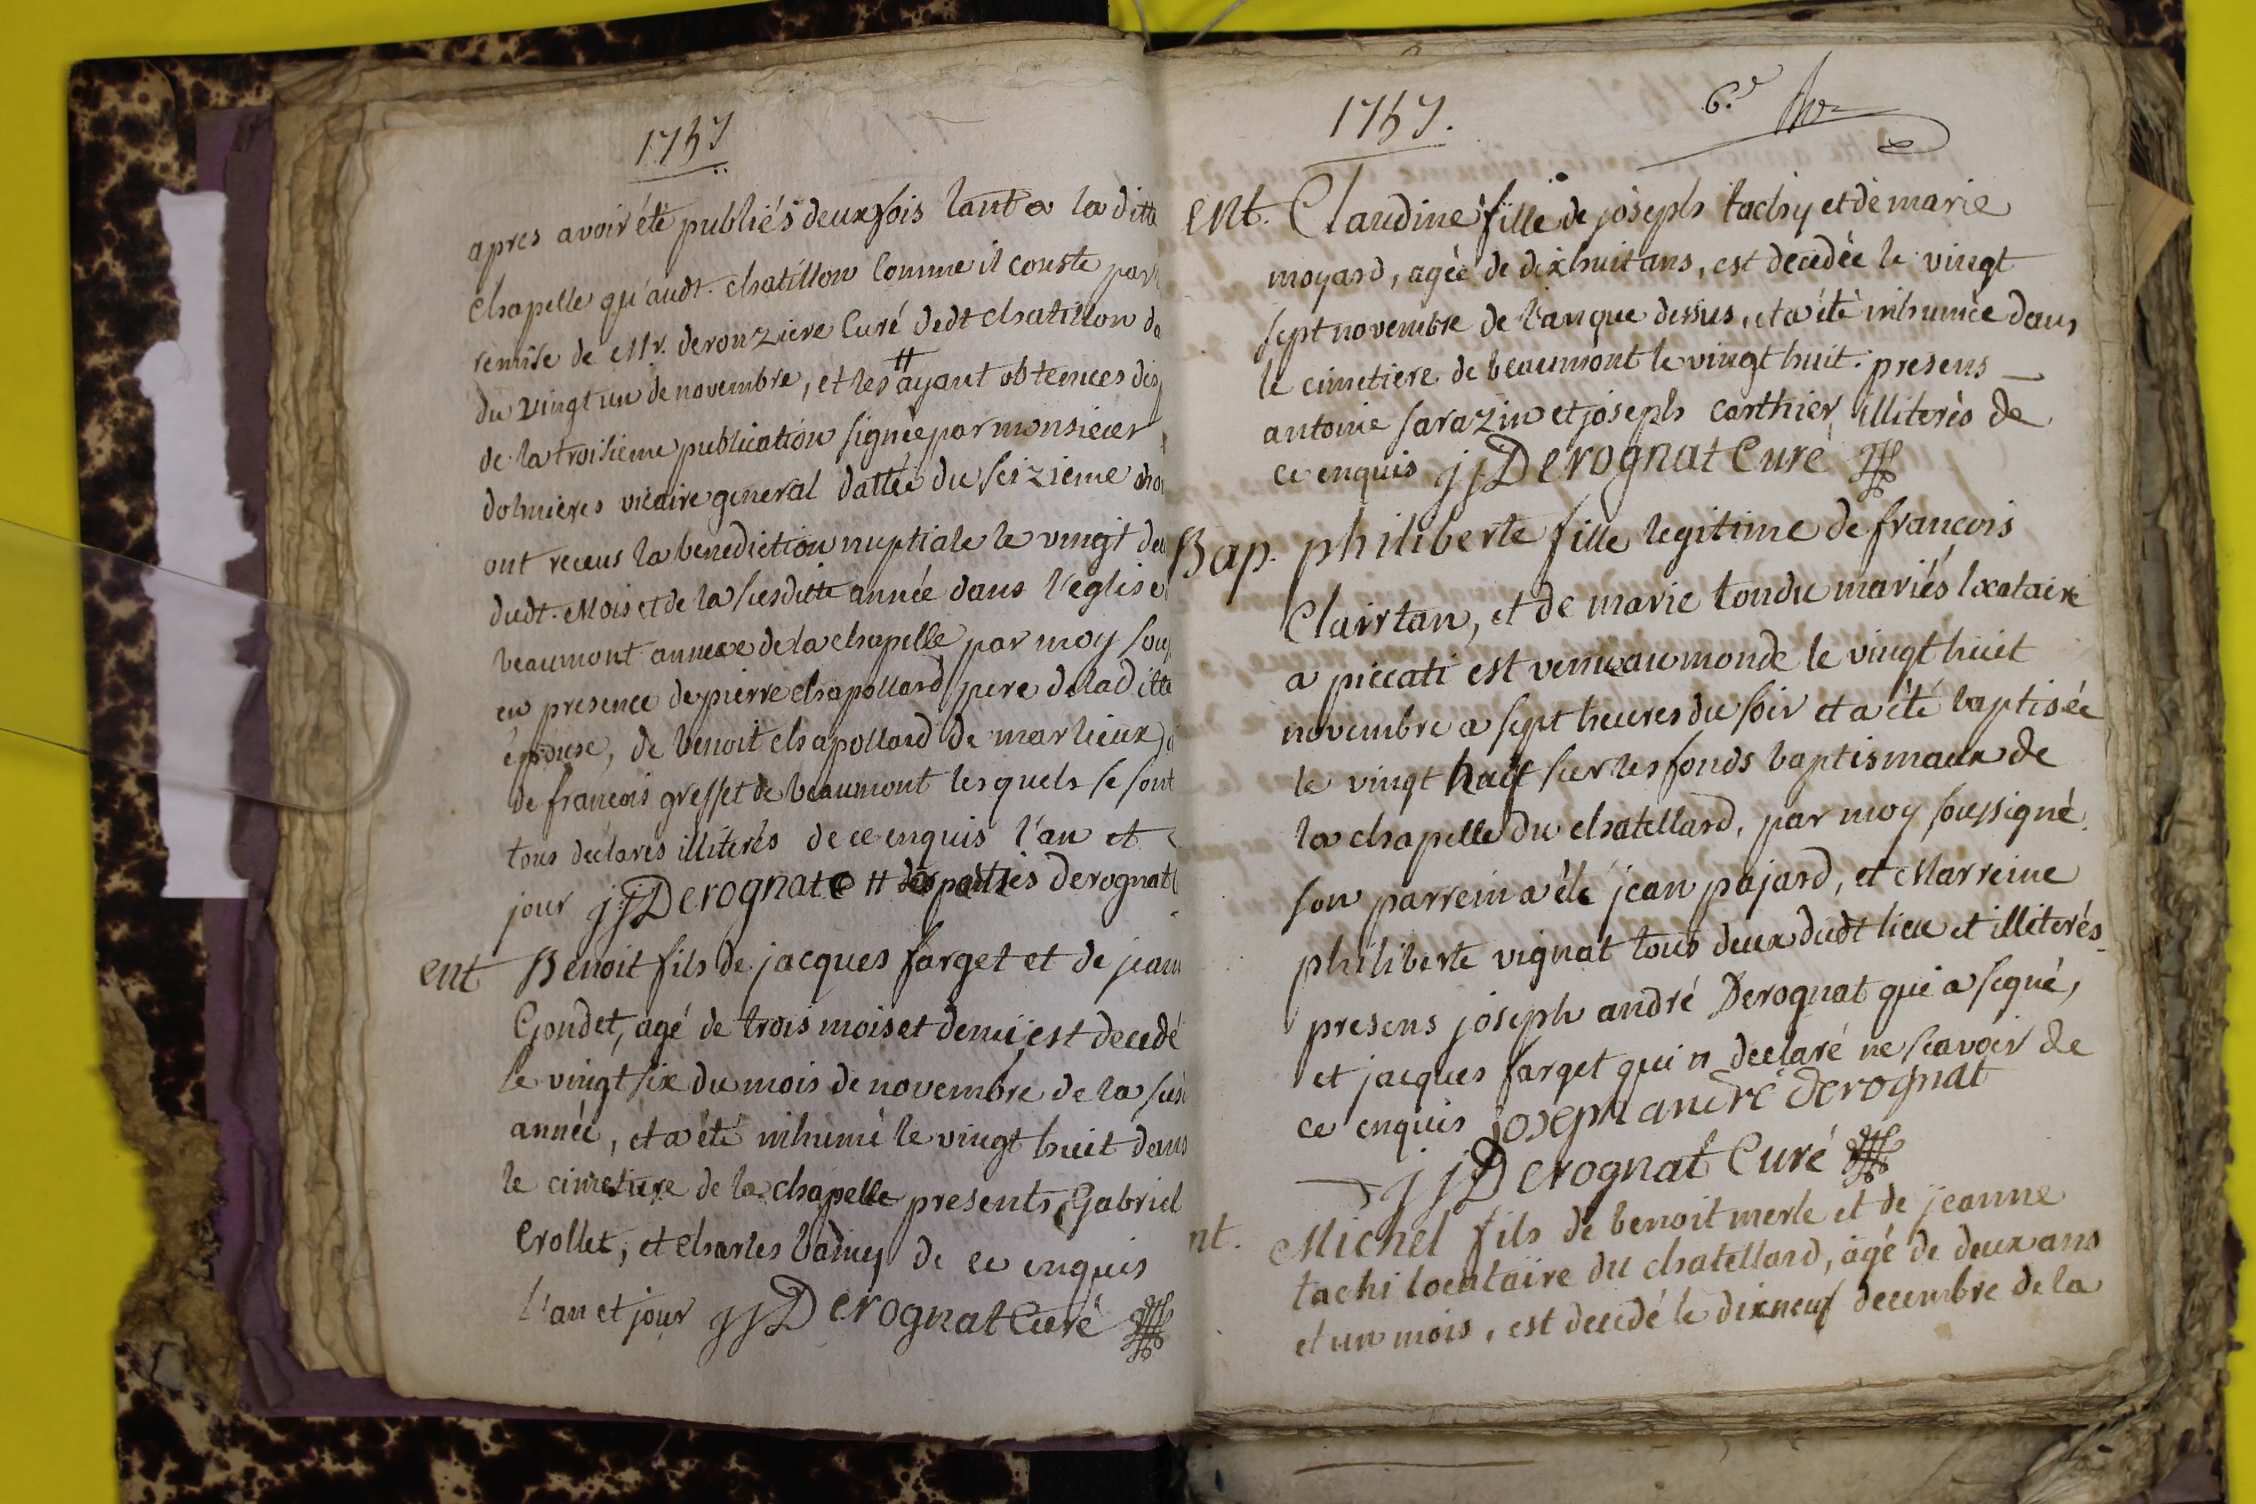 1757
apres avoir été publiés deux fois tant a la ditte
chapelle qu'audt. chatillon comme il conste par
remise de Mr. deronziere Curé dedt chatillon da
du vingt un de novembre, et les # ayant obtenues dis
de la troisieme publication signée par monsieur
dolmieres vicaire general dattée du seizieme
ont receus la benediction nuptiale le vingt deu
dudt. Mois et de la susditte année dans l'eglise
beaumont annexe de la chapelle par moy sou
en presence de pierre chapollard pere de la ditte
épouse, de benoit chapollard de marlieux,
de francois gresset de beaumont lesquels se sont
tous declarés illiterés de ce enquis l'an et
jour jjDerognat # parties derognat
ent Benoit fils de jacques farget et de jean
Gondet, agé de trois mois et demi, est decedé
le vingt six du mois de novembre de la sus
année, et a été inhumé le vingt huit dans
le cimetiere de la chapelle presents Gabriel
Crollet, et charles badiey de ce enquis
l'an et jour jjDerognat Curé
1757.
6.e
ent. Claudine fille de joseph tachy et de marie
moyard, agée de dixhuit ans, est decedée le vingt
sept novembre de l'an que dessus, et a été inhumée dans
le cimetiere de beaumont le vingt huit. presens
antoine sarazin et joseph carthier illiterés de
ce enquis jjDerognat Curé
Bap. philiberte fille legitime de francois
Clairtan, et de marie tondu mariés locataire
a piccati est venue au monde le vingt huit
novembre a sept heures du soir et a été baptisée
le vingt neuf sur les fonds baptismaux de
la chapelle du chatellard, par moy soussigné.
son parrein a été jean pajard, et Marreine
philiberte vignat tous deux dudt lieu et illiterés
presens joseph andré Derognat qui a signé,
et jacques farget qui a declaré ne scavoir de
ce enquis joseph andré derognat
jjDerognat Curé
nt. Michel fils de benoit merle et de jeanne
tachi locataire du chatellard, agé de deux ans
et un mois, est decedé le dixneuf decembre de la